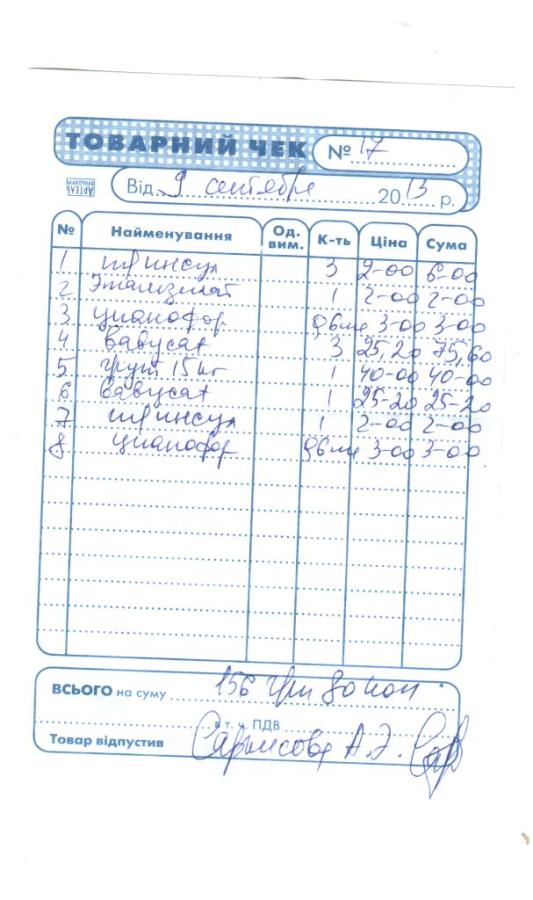 ТОВАРНИЙ ЧЕК № 17
Від 9 сентября 2013 р.
№ Найменування Од. вим. К-ть Ціна Сума
1 шприцул 3 2-00 6-00
2 Этамзилат 1 2-00 2-00
3 цианофор 0,6мл 3-00 3-00
4 Вавусат 3 25,20 75,60
5 грунт 15 кг 1 40-00 40-00
6 Вавусат 1 25-20 25-20
7 1 2-00 2-00
8 цианофор 0,6мл 3-00 3-00
ВСЬОГО на суму 156 грн 80 коп
в т. ч. ПДВ
Товар відпустив А.Э.